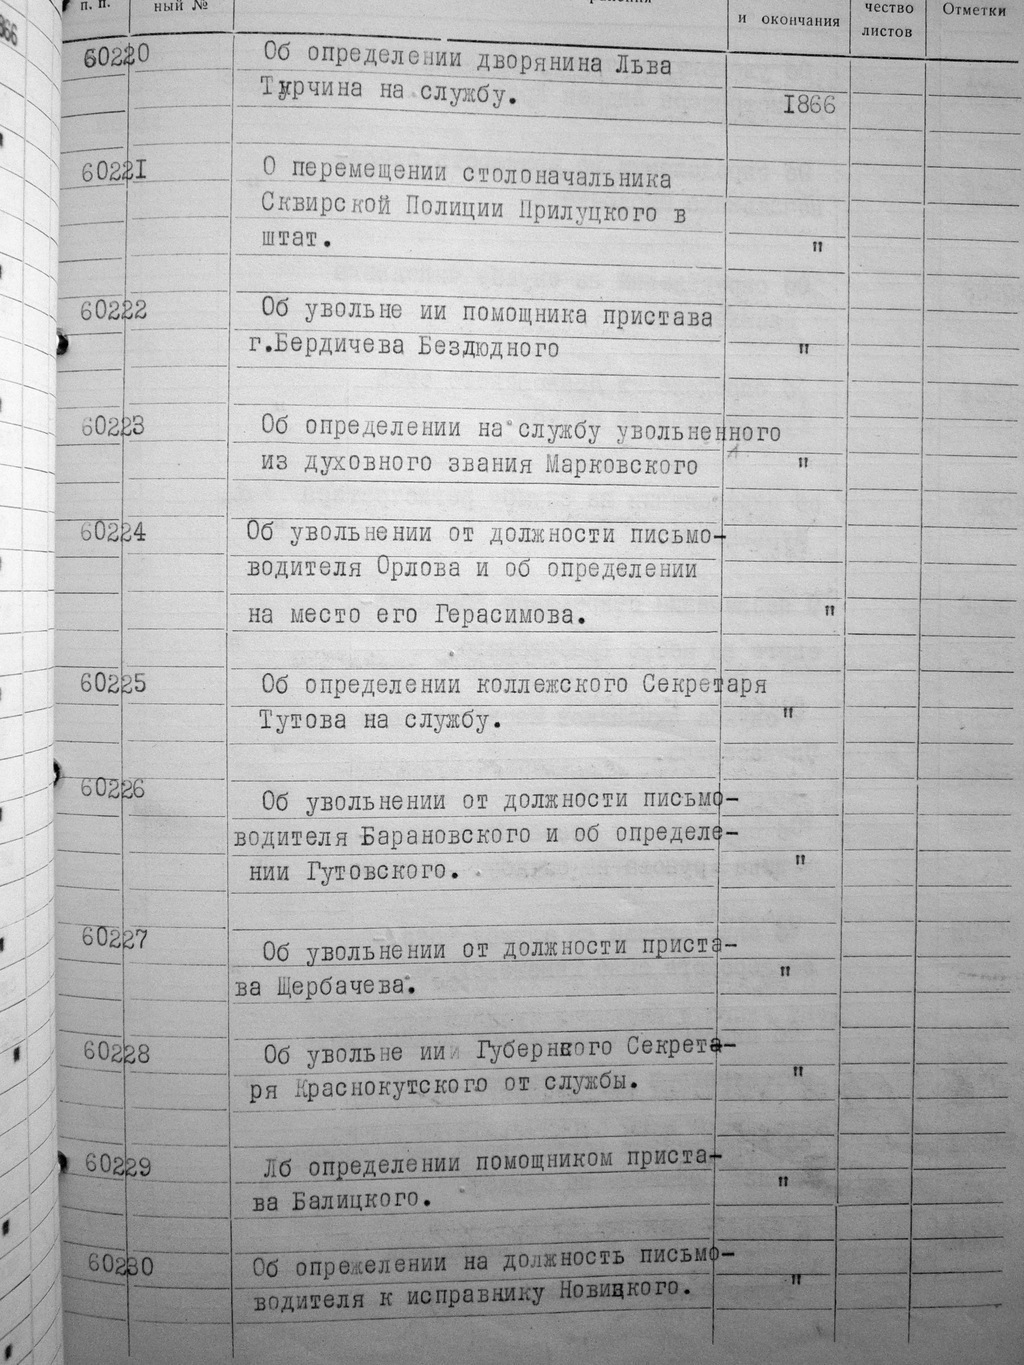 п. п.
ный №
и окончания
чество
листов
Отметки
866
60220 Об определении дворянина Льва
Турчина на службу.
1866
60221 О перемещении столоначальника
Сквирской Полиции Прилуцкого в
штат. "
60222 Об увольне ии помощника пристава
г.Бердичева Бездюдного "
60223 Об определении на службу увольненного
из духовного звания Марковского "
60224 Об увольнении от должности письмо-
водителя Орлова и об определении
на место его Герасимова. "
60225 Об определении коллежского Секретаря
Тутова на службу. "
60226 Об увольнении от должности письмо-
водителя Барановского и об определе-
нии Гутовского. "
60227 Об увольнении от должности приста-
ва Щербачева. "
60228 Об увольне ии Губернкого Секрета-
ря Краснокутского от службы. "
60229 Лб определении помощником приста-
ва Балицкого. "
60230 Об опрежелении на должность письмо-
водителя к исправнику Новицкого. "